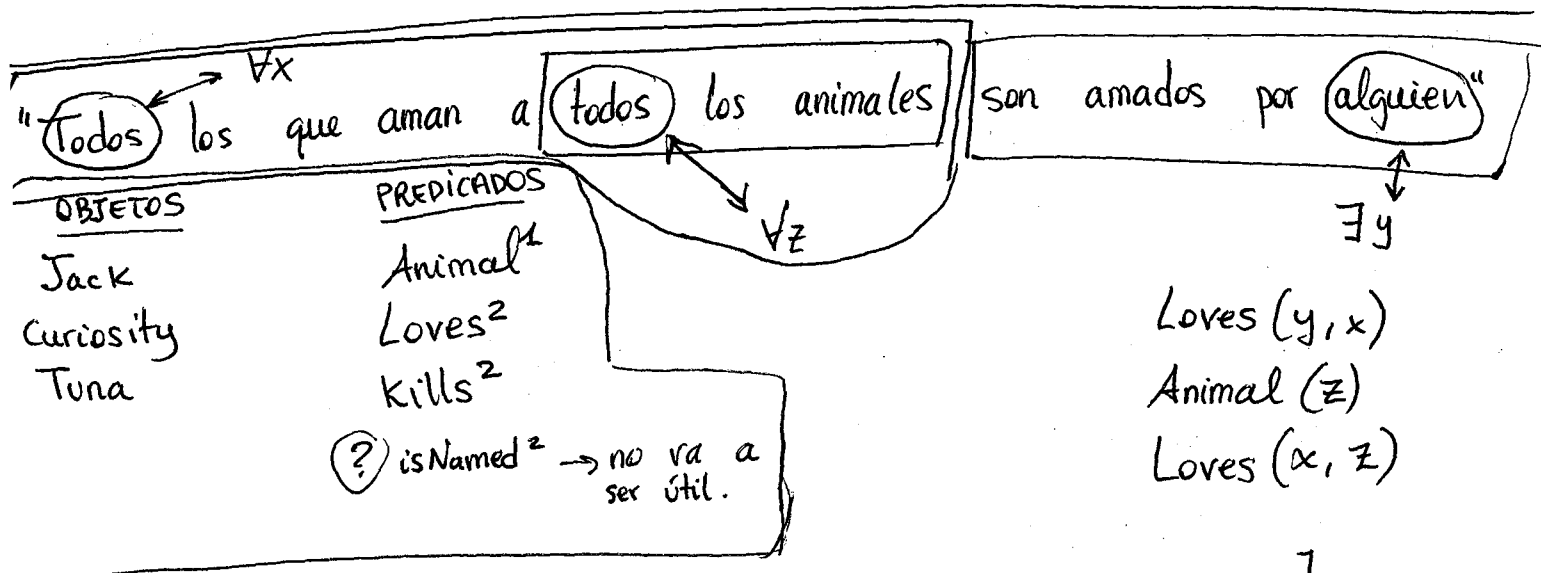 ∀x
"Todos los que aman a todos los animales son amados por alguien"
∀z
∃y
OBJETOS
Jack
Curiosity
Tuna
PREDICADOS
Animal¹
Loves²
Kills²
? isNamed² → no va a
ser útil.
Loves (y, x)
Animal (z)
Loves (x, z)